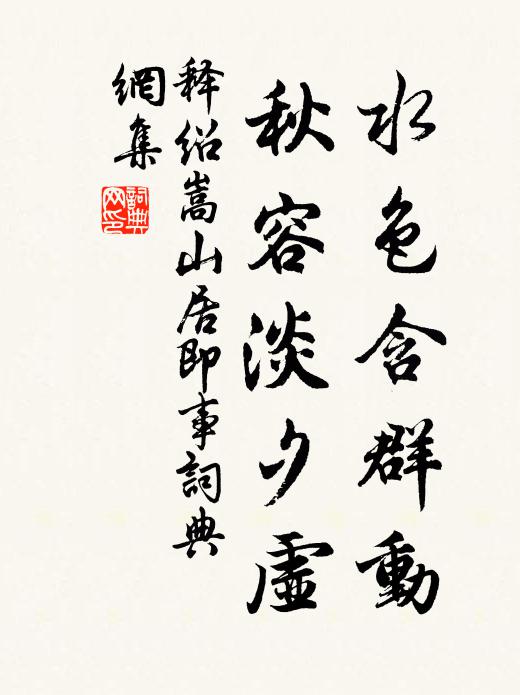 水色含群動
秋容淡夕虛
释绍嵩山居即事詞典
網集
詞典網印